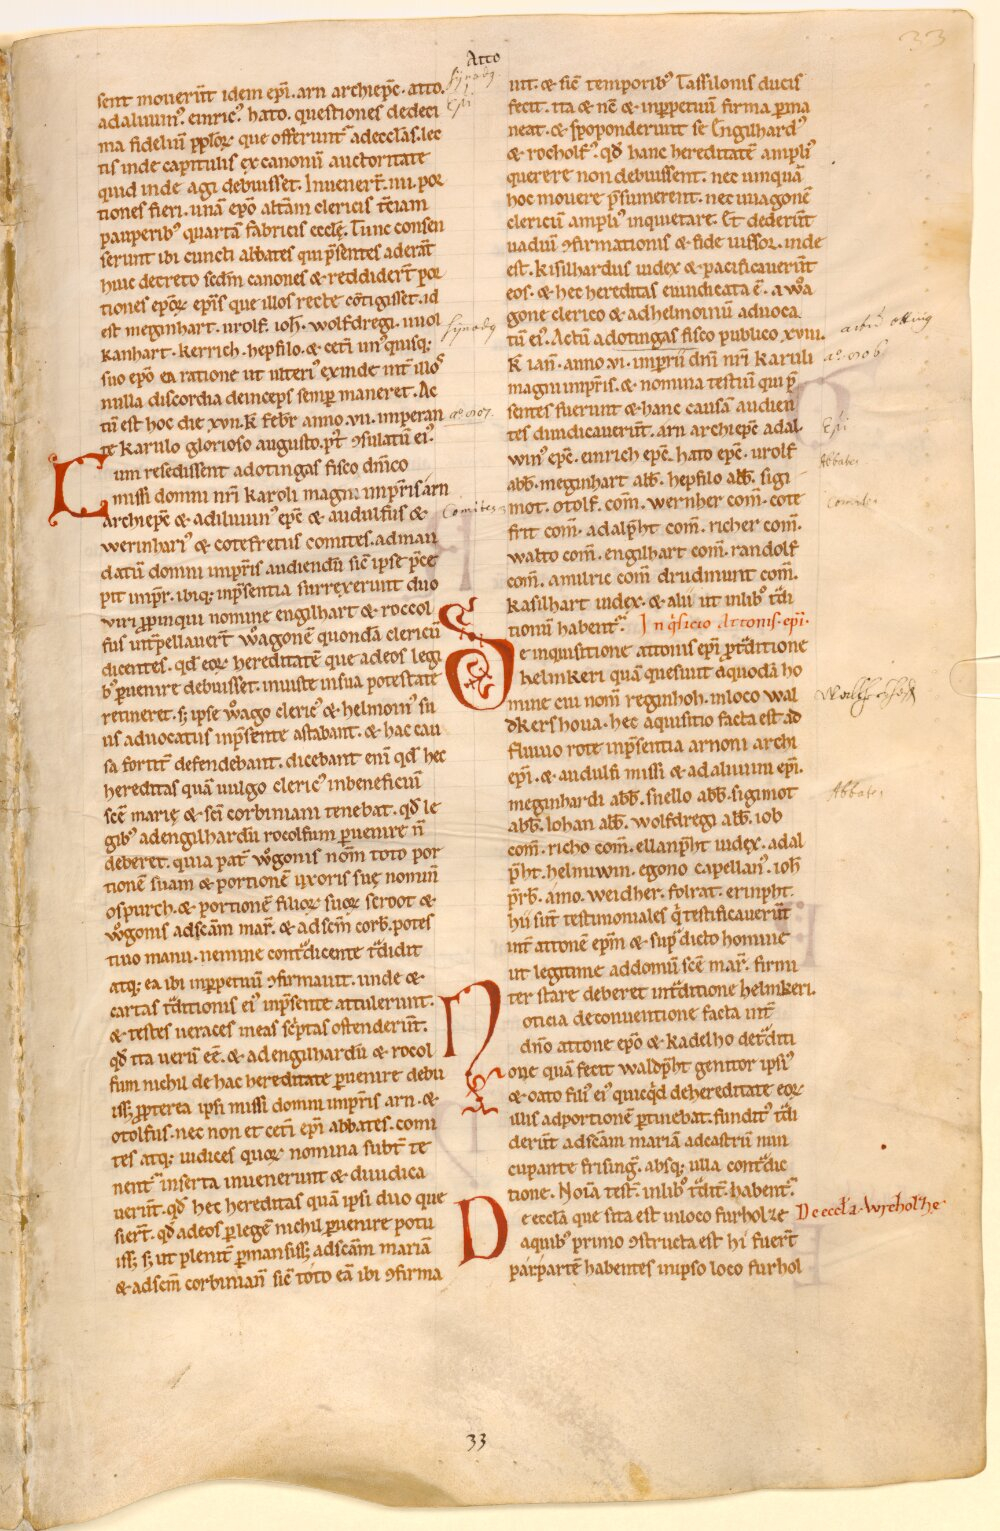 33
Atto
sent mouerūt idem ep̄i. arn archiep̄c. atto.
adaluuin᷒. einric᷒. hato. questiones de deci
ma fidelium pp̄lorꝫ que offerunt᷑ adecclas. lec
tis inde capitulis ex canonū auctoritate
quid inde agi debuisset. Inuener̄t. iiii. por
tiones fieri. unā ep̄o alt̄am clericis t̄ciam
pauperib᷒ quartā fabricis ecclę. Tunc consen
serunt ibi cuncti abbates qui p̄sentes aderāt
huic decreto sc̄dm canones & reddider̄t por
tiones ep̄orꝫ ep̄is que illos recte cōtigisset. id
est meginhart. urolf. ioh̄. wolfdregi. uuol
kanhart. kerrich. hepfilo. & cet̄i un᷒quisq;
suo ep̄o ea ratione ut ulteri᷒ exinde int̄ illos
nulla discordia deinceps semp̱ maneret. Ac
tū est hoc die xvii. k̄ feb̄r anno. vii. imperan
te karulo glorioso augusto. p̱t ↄsulatū ei᷒.
Cum resedissent adotingas fisco dn̄ico
missi domni nr̄i karoli magni imp̱ris arn
archiep̄c & adiluuin᷒ ep̄c & audulfus &
werinhari᷒ & cotefretus comites. ad man
datū domni imp̱ris audiendū sic̄ ipse p̄ce
pit imp̱r. ibiq; inp̄sentia surrexerunt duo
uiri p̱pinqui nomine engilhart & roccol
fus int̄pellauer̄t wͦagonē quondā clericū
dicentes. qd̄ eorꝫ hereditatē que ad eos legi
b᷒ p̱uenire debuisset. iniuste in sua potestate
retineret. sꝫ ipse wͦago cleric᷒ & helmoin᷒ su
us aduocatus inp̄sente astabant. & hac cau
sa fortit̄ defendebant. dicebant eni qd̄ hec
hereditas quā uulgo cleric᷒ in beneficiū
sc̄ę marię & sc̄i corbiniani tenebat. qd̄ le
gib᷒ ad engilhardū rocolfum p̱uenire n̄
deberet. quia pat̄ wͦgonis nom̄ toto por
tionē suam & portionē uxoris suę nomin̄
ospurch. & portionē filiorꝫ suorꝫ scroot &
wͦgonis ad sc̄am mar̄. & ad sc̄m corb̄. potes
tiuo manu. nemine contᵃdicente tᵃdidit
atq; ea ibi inp̱petuū ↄfirmauit. unde &
cartas tᵃditionis ei᷒ inp̄sente attulerunt.
& testes ueraces in eas sc̄ptas ostenderūt.
qd̄ ita uerū eē. & ad engilhardū & rocol
fum nichil de hac hereditate p̱uenire debu
issꝫ p̱pterea ipsi missi domni imp̱ris arn. &
otolfus. nec non et cet̄i ep̄i abbates. comi
tes atq; iudices quorꝫ nomina subt̄ te
nent᷑ inserta inuenerunt & diiudica
uerūt. qd̄ hec hereditas quā ipsi duo que
sier̄t. qd̄ ad eos p̱ legē nichil p̱uenire potu
issꝫ. sꝫ ut plenit̄ p̱mansissꝫ ad sc̄am mariā
& ad sc̄m corbinian̄ sic̄ toto eā ibi ↄfirma
synodꝫ.
Ep̄i
synodꝫ
aͦ. 807.
Comites
uit. & sic̄ temporib᷒ Tassilonis ducis
fecit. ita & nē & inp̱petuū firma p̱ma
neat. & spoponderunt se Engilhard᷒
& rocholf᷒. qd̄ hanc hereditatē ampli᷒
querere non debuissent. nec umquā
hoc mouere p̄sumerent. nec uuagonē
clericū ampli᷒ inquietare. Et dederūt
uadiū ↄfirmationis & fide iussor̄. inde
est. kisilhardus iudex & pacificauerūt
eos. & hec hereditas euindicata ē. a wͦa
gone clerico & adhelmoinū aduoca
tū ei᷒. Actū adotingas fisco publico xviii.
k̄ ian̄. anno. vi. imp̱rii dn̄i nr̄i karuli
magni imp̱ris. & nomina testiū qui p̄
sentes fuerunt & hanc causā audien
tes diiudicauerūt. arn archiep̄c adal
win᷒ ep̄c. einrich ep̄c. hato ep̄c. urolf
abb̄. meginhart abb̄. hepfilo abb̄. sigi
mot. otolf. com̄. wernher com̄. cote
frit com̄. adalp̄ht com̄. richer com̄.
walto com̄. engilhart com̄. randolf
com̄. amilric com̄ drudmunt com̄.
kasilhart iudex. & alii ut in lib᷒ tᵃdi
tionū habent᷑. Inq̄sicio Attonis. ep̄i.
De inquisitione attonis ep̄i p̱ tᵃditione
helmkeri quā quesiuit a quodā ho
mine cui nom̄ reginhoh. in loco wal
dkershoua. hec aquisitio facta est ad
fluuio rote inp̄sentia arnoni archi
ep̄i. & audulfi missi & adaluuini ep̄i.
meginhardi abb̄. snello abb̄. sigimot
abb̄. lohan abb̄. wolfdregi abb̄. iob
com̄. richo com̄. ellanp̄ht iudex. adal
p̄ht. helmuwin. egono capellan᷒. ioh̄
p̄rb̄. amo. weidher. folrat. erinp̄ht.
hii sūt testimoniales q̄ testificauerūt
int̄ attonē ep̄m & supᵃdicto homine
ut legitime ad domū sc̄ę mar̄. firmi
ter stare deberet int̄ᵃditione helmkeri.
Noticia de conuentione facta int̄
dn̄o attone ep̄o & kadelho de tᵃditi
one quā fecit waldp̄ht genitor ipsi᷒
& oato fui᷒ ei᷒ quicq̄d de hereditate eorꝫ
illis ad portionē p̱tinebat. fundit᷒ tᵃdi
derūt ad sc̄am mariā ad castrū nun
cupante frising̃. absq; ulla contᵃdic
tione. Noīa test̄. in lib᷒ tᵃdit̄. habent᷑.
De eccl̄a que sita est in loco furholze De eccl̄a. Wreholzhe
a quib᷒ primo ↄstructa est hi fuer̄t
parp̱artē habentes in ipso loco furhol
aͦ. 806
Ep̄i
Abbates
Comites
Abbates
33